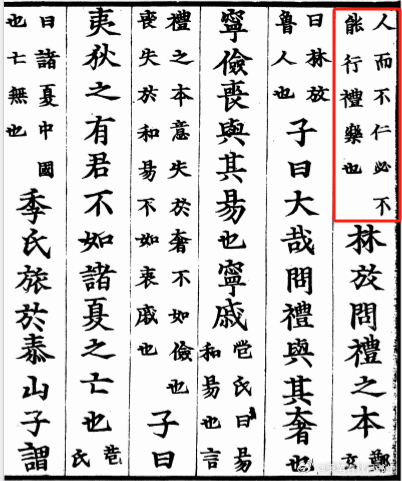 人而不仁必不
能行禮樂也
林放問禮之本
鄭
玄
曰林放
魯人也
子曰大哉問禮與其奢也
寧儉喪與其易也寧戚
苞氏曰易
和易也言
禮之本意失於奢不如儉也
喪失於和易不如哀戚也
子曰
夷狄之有君不如諸夏之亡也
苞
氏
曰諸夏中國
也亡無也
季氏旅於泰山子謂